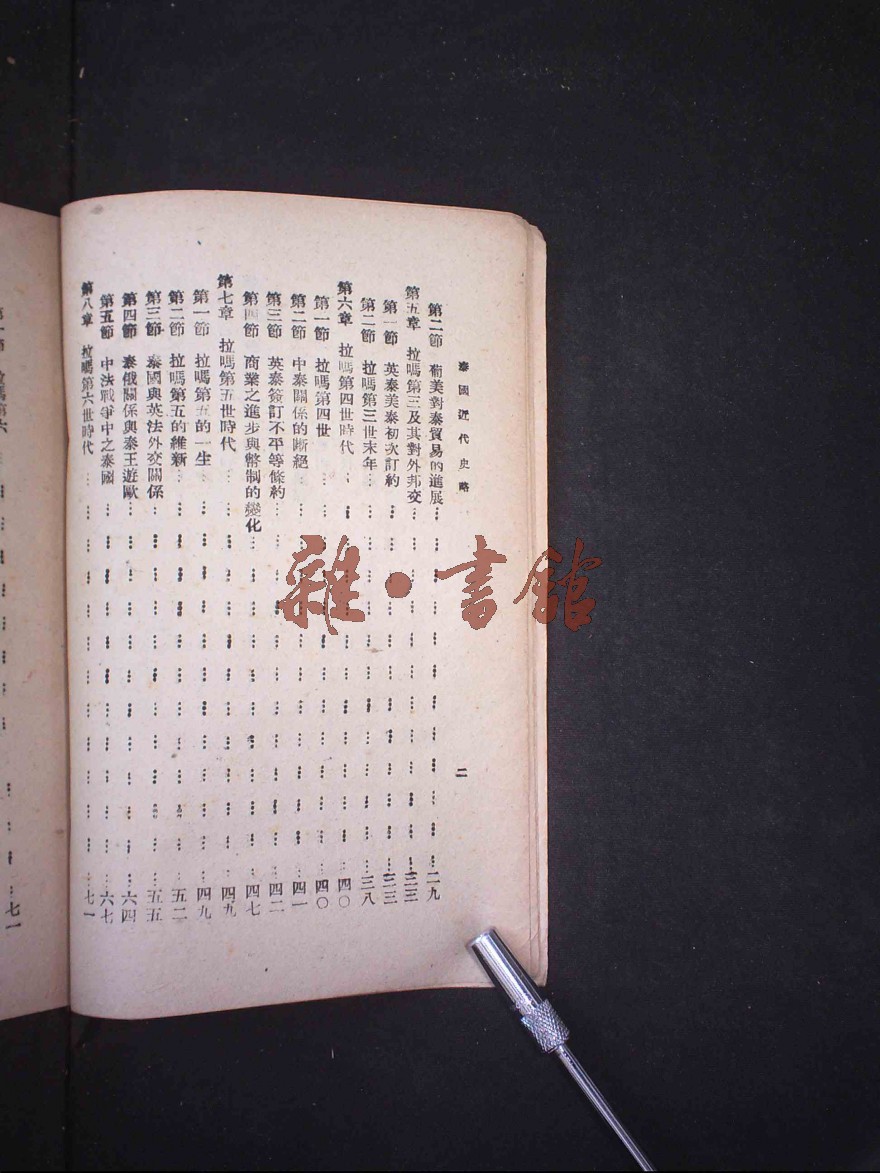 泰國近代史略
二
第二節 葡美對泰貿易的進展……二九
第五章 拉嗎第三及其對外邦交……三三
第一節 英泰美泰初次訂約……三三
第二節 拉嗎第三世末年……三八
第六章 拉嗎第四世時代……四〇
第一節 拉嗎第四世……四〇
第二節 中泰關係的斷絕……四一
第三節 英泰簽訂不平等條約……四二
第四節 商業之進步與幣制的變化……四七
第七章 拉嗎第五世時代……四九
第一節 拉嗎第五的一生……四九
第二節 拉嗎第五的維新……五二
第三節 泰國與英法外交關係……五五
第四節 泰俄關係與泰王遊歐……六四
第五節 中法戰爭中之泰國……六七
第八章 拉嗎第六世時代……七一
七一
雜·書館